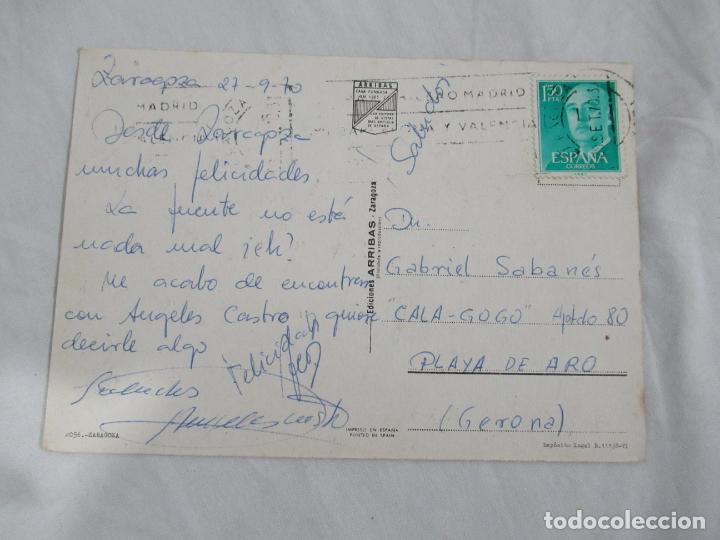 Zaragoza 27-9-70
MADRID
Desde Zaragoza
muchas felicidades.
La fuente no está
nada mal ¡eh!
Me acabo de encontrar
con Angeles Castro y quiere
decirle algo
Felicidades
Saludos
2056.-ZARAGOZA
ARRIBAS
CASA FUNDADA
Saludos
MADRID
Y VALENCIA
1'50
PTA
ESPAÑA
CORREOS
Ediciones ARRIBAS - Zaragoza
(Prohibida la reproducción)
IMPRESO EN ESPAÑA
PRINTED IN SPAIN
Gabriel Sabanés
"CALA-GOGO" Aptdo 80
PLAYA DE ARO
(Gerona)
Depósito Legal B.11138-VI
todocoleccion.net